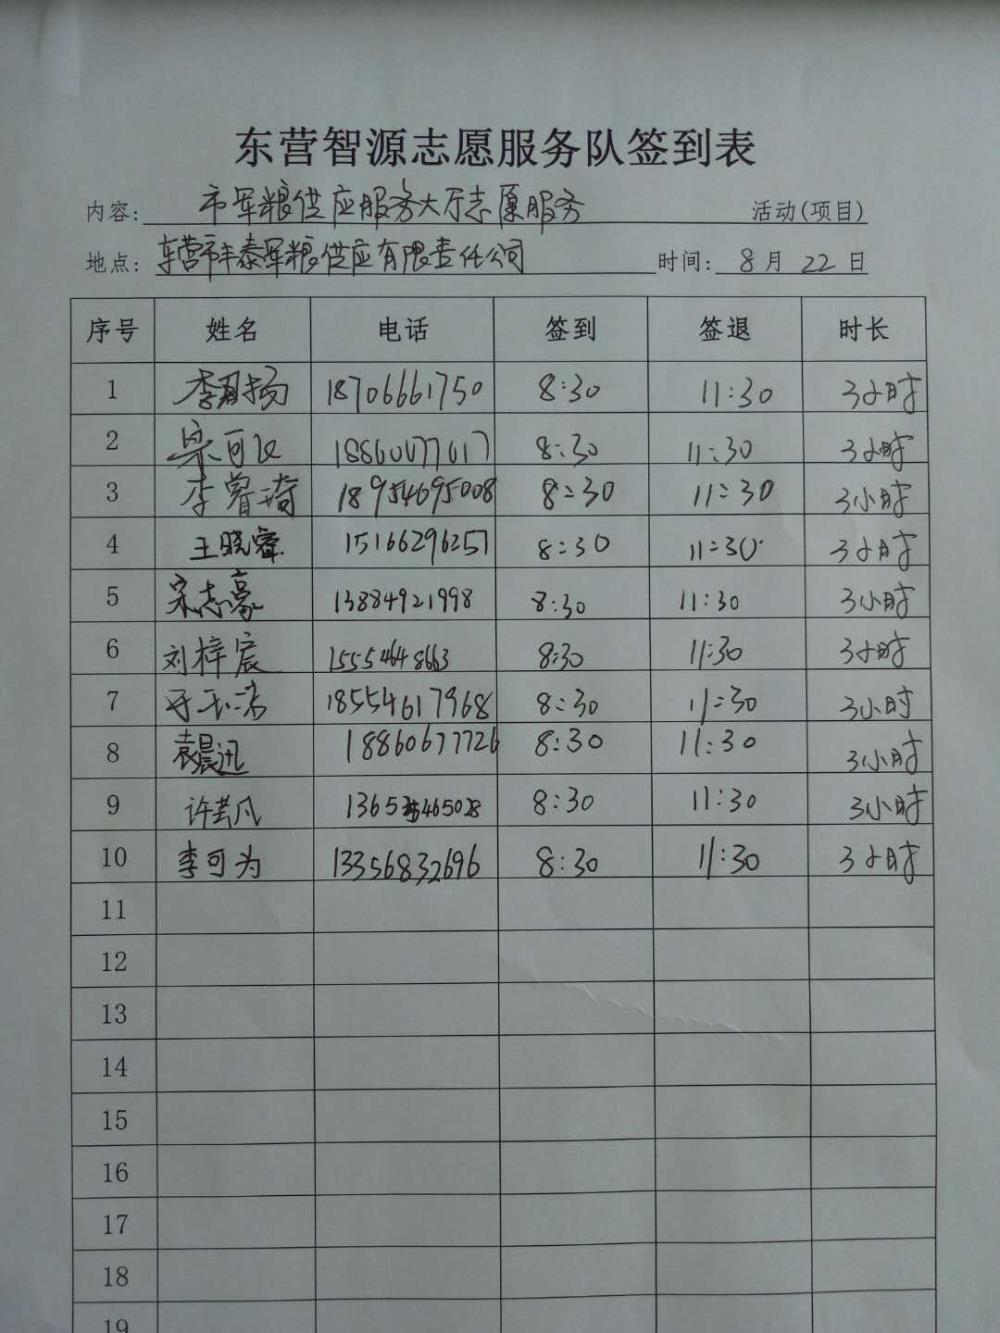 东营智源志愿服务队签到表
内容: 市军粮供应服务大厅志愿服务 活动(项目)
地点: 东营市丰泰军粮供应有限责任公司 时间: 8 月 22 日
序号 姓名 电话 签到 签退 时长
1 李 扬 18706661750 8:30 11:30 3小时
2 宋可 8:30 11:30 3小时
3 李睿琦 18954695008 8:30 11:30 3小时
4 王晓睿 15166296257 8:30 11:30 3小时
5 宋志豪 13884921998 8:30 11:30 3小时
6 刘梓宸 15554648663 8:30 11:30 3小时
7 18554617968 8:30 11:30 3小时
8 袁晨迅 18860677726 8:30 11:30 3小时
9 许芸凡 8:30 11:30 3小时
10 李可为 13356832696 8:30 11:30 3小时
11
12
13
14
15
16
17
18
19